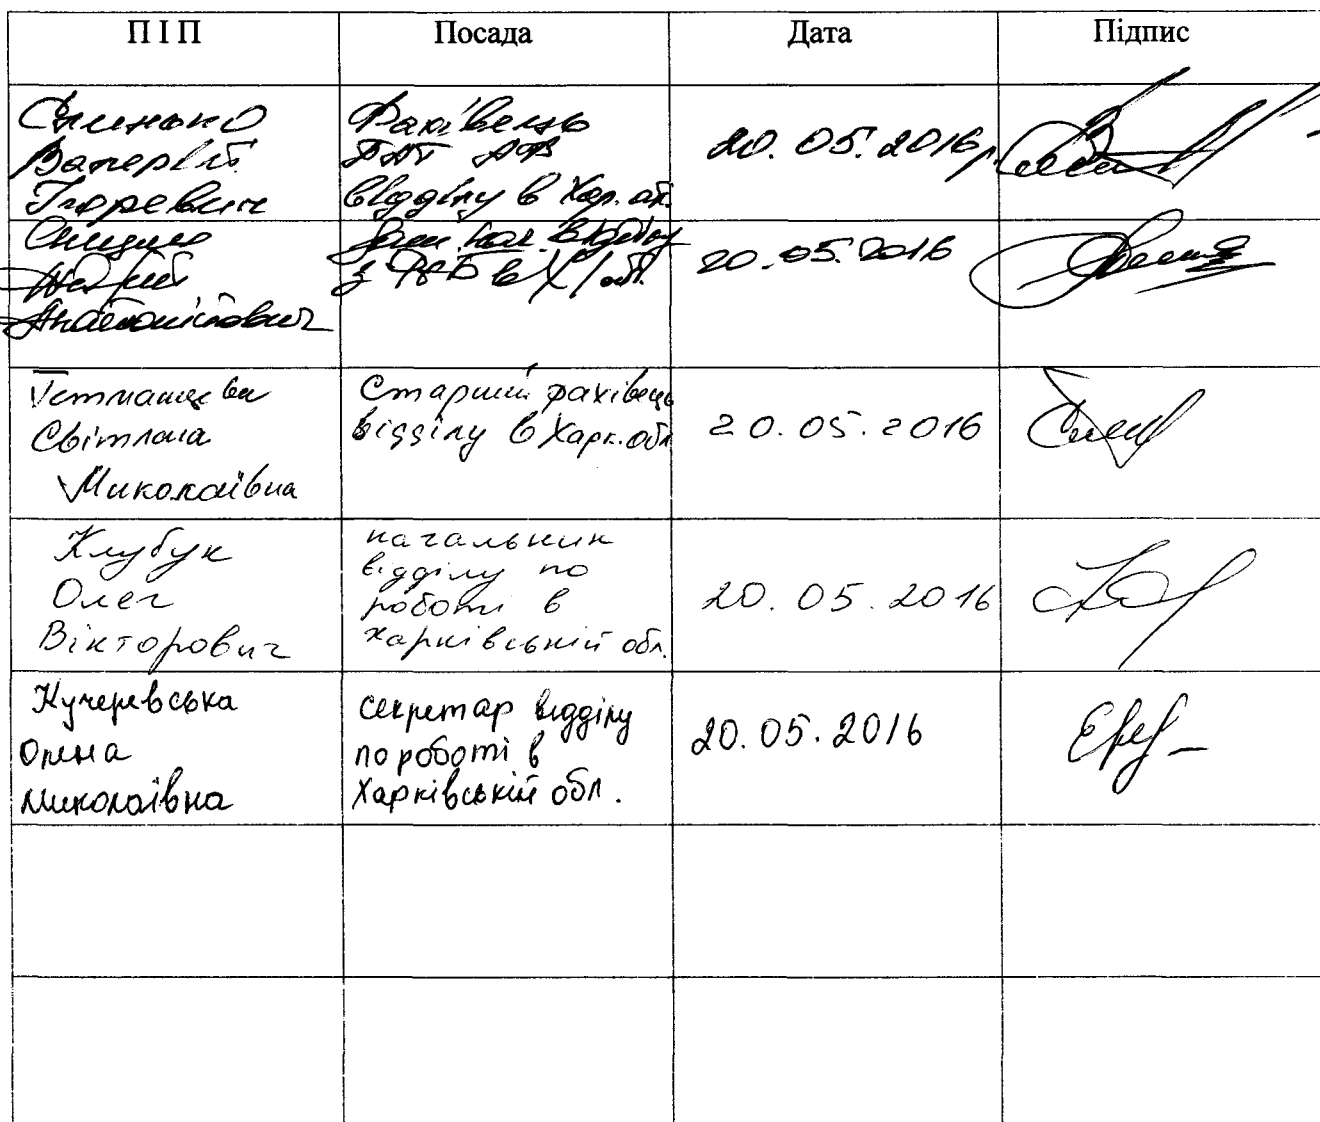 П І П Посада Дата Підпис
Валерій
Ігоревич
Фахівець
відділу в Хар. обл.
20. 05. 2016р.
Анатолійович
відділу
20.05.2016
Світлана
Миколаївна
Старший фахівець
відділу в Харк. обл.
20.05.2016
Клубук
Олег
Вікторович
начальник
відділу по
роботі в
харківській обл.
20.05.2016
Кучеревська
Олена
Миколаївна
секретар відділу
по роботі в
Харківській обл.
20.05.2016